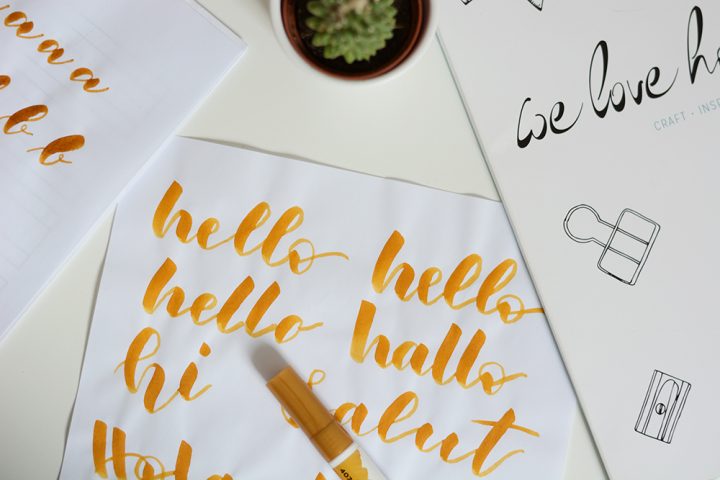 aaaa
b b
we love
CRAFT · INS
hello
hello
hello
hallo
hi
salut
Hola
407